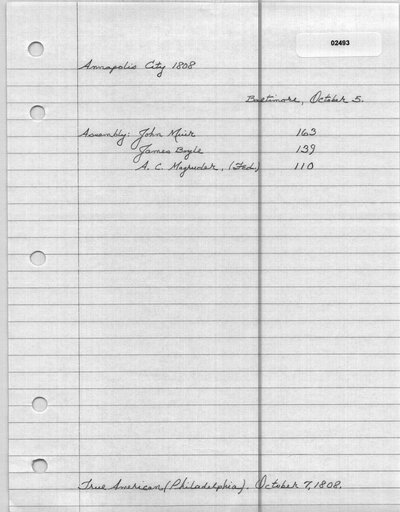 02493
Annapolis City 1808
Baltimore, October 5.
Assembly: John Muir 163
James Boyle 139
A. C. Magruder, (Fed.) 110
True American (Philadelphia). October 7, 1808.